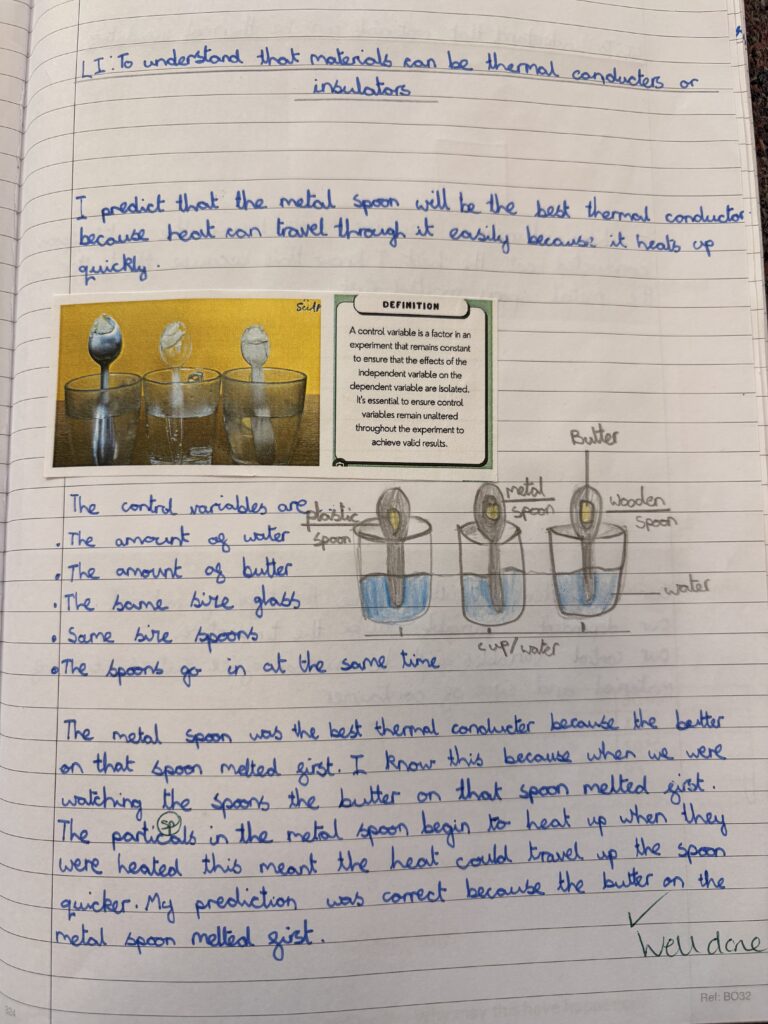 LI: To understand that materials can be thermal conducters or
insulators
I predict that the metal spoon will be the best thermal conductor
because heat can travel through it easily because it heats up
quickly.
DEFINITION
A control variable is a factor in an
experiment that remains constant
to ensure that the effects of the
independent variable on the
dependent variable are isolated.
It's essential to ensure control
variables remain unaltered
throughout the experiment to
achieve valid results.
Butter
The control variables are
plastic
spoon
metal
spoon
wooden
spoon
• The amount of water
• The amount of butter
• The same size glass
water
• Same size spoons
cup/water
• The spoons go in at the same time
The metal spoon was the best thermal conducter because the butter
on that spoon melted first. I know this because when we were
watching the spoons the butter on that spoon melted first.
sp
The particals in the metal spoon begin to heat up when they
were heated this meant the heat could travel up the spoon
quicker. My prediction was correct because the butter on the
metal spoon melted first.
Well done
Ref: BO32